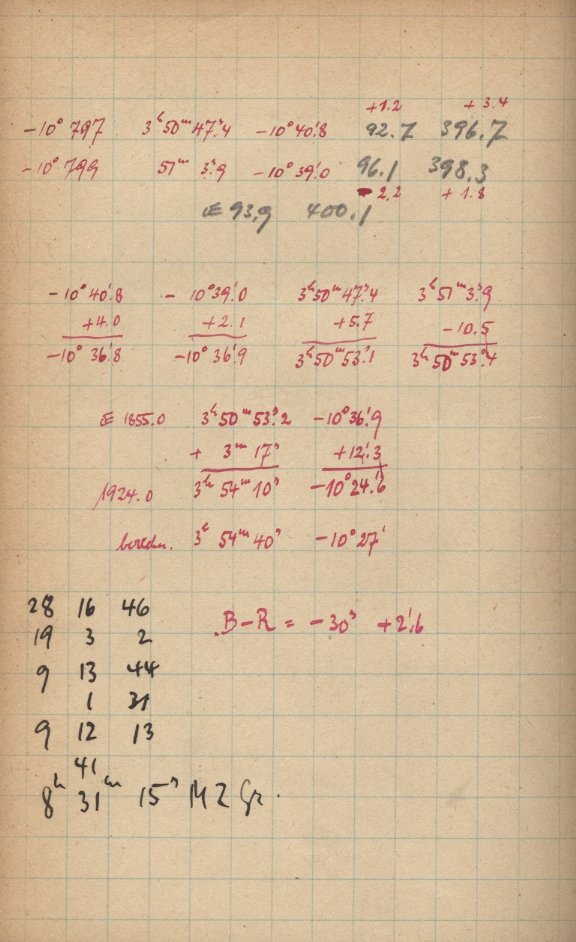 +1.2 +3.4
−10° 797 3ʰ50ᵐ47ˢ.4 −10°40'.8 92.7 396.7
−10° 799 51ᵐ 3ˢ.9 −10°39'.0 96.1 398.3
−2.2 +1.8
93.9 400.1
−10°40'.8 −10°39'.0 3ʰ50ᵐ47ˢ.4 3ʰ51ᵐ3ˢ.9
+4.0 +2.1 +5.7 −10.5
−10°36'.8 −10°36'.9 3ʰ50ᵐ53ˢ.1 3ʰ50ᵐ53ˢ.4
1855.0 3ʰ50ᵐ53ˢ.2 −10°36'.9
+ 3ᵐ 17ˢ +12'.3
1924.0 3ʰ 54ᵐ 10ˢ −10°24'.6
berechn. 3ʰ 54ᵐ 40ˢ −10°27'
28 16 46
B−R = −30ˢ +2'.6
19 3 2
9 13 44
1 31
9 12 13
41
8ʰ 31ᵐ 15ˢ MZ Gr.